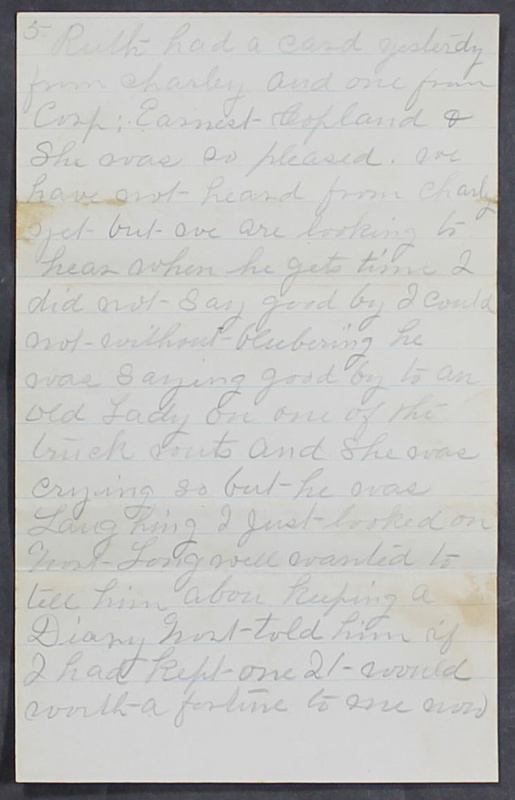 5
Ruth had a card yesterdy
from charley and one from
Corp; Earnest Copland &
She was so pleased. we
have not heard from charly
yet but we are looking to
hear when he gets time I
did not Say good by I could
not without blubering he
was Saying good by to an
old Lady on one of the
truck routs and She was
crying so but he was
Laughing I Just looked on
Longwell wanted to
tell him abou keeping a
Diary told him if
I had kept one It would
worth a fortine to me now